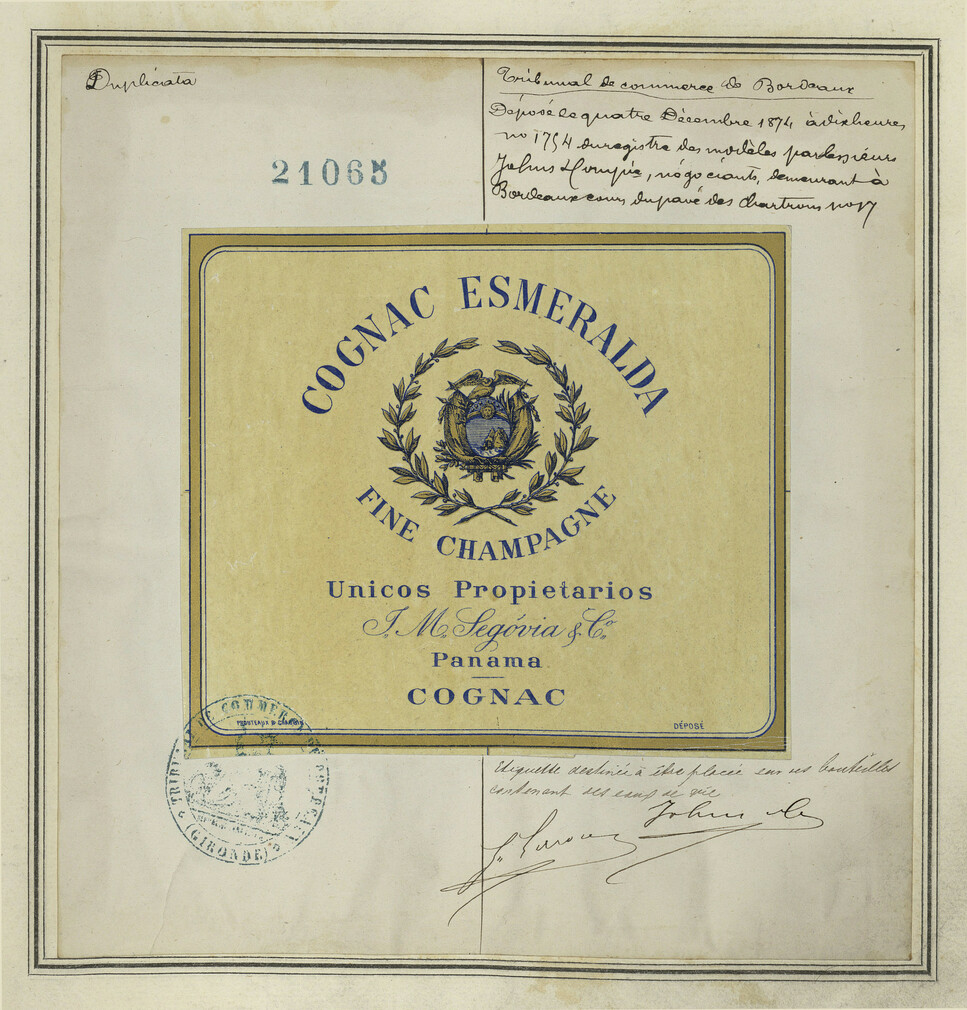 Duplicata
21065
Tribunal de commerce de Bordeaux
Déposé le quatre Décembre 1874 à dix heures
no 1754 du registre des modèles par les sieurs
Johns & Compie, négociants, demeurant à
Bordeaux cours du pavé des chartrons no 17
COGNAC ESMERALDA
FINE CHAMPAGNE
Unicos Propietarios
J. M. Segóvia & Co
Panama
COGNAC
DÉPOSÉ
TRIBUNAL DE COMMERCE DE BORDEAUX
(GIRONDE)
Etiquette destinée à être placée sur ses bouteilles
contenant ses eaux de vie
Johns &c